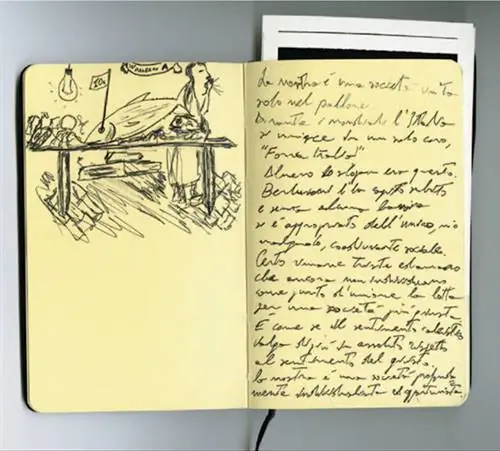 PALERMO
La nostra è una società unita
solo nel pallone.
Durante i mondiali l'Italia
si unisce in un solo coro,
"Forza Italia!"
Almeno lo slogan era questo.
Berlusconi l'ha capito subito
e senza alcuna
si è appropriato dell'unico, mio
malgrado, coadiuvante sociale.
Certo rimane triste
che ancora non
come punto d'unione la lotta
per una società più giusta.
È come se il sentimento calcistico
valga di più in assoluto rispetto
al sentimento del giusto.
La nostra è una società profonda
mente individualista ed opportunista